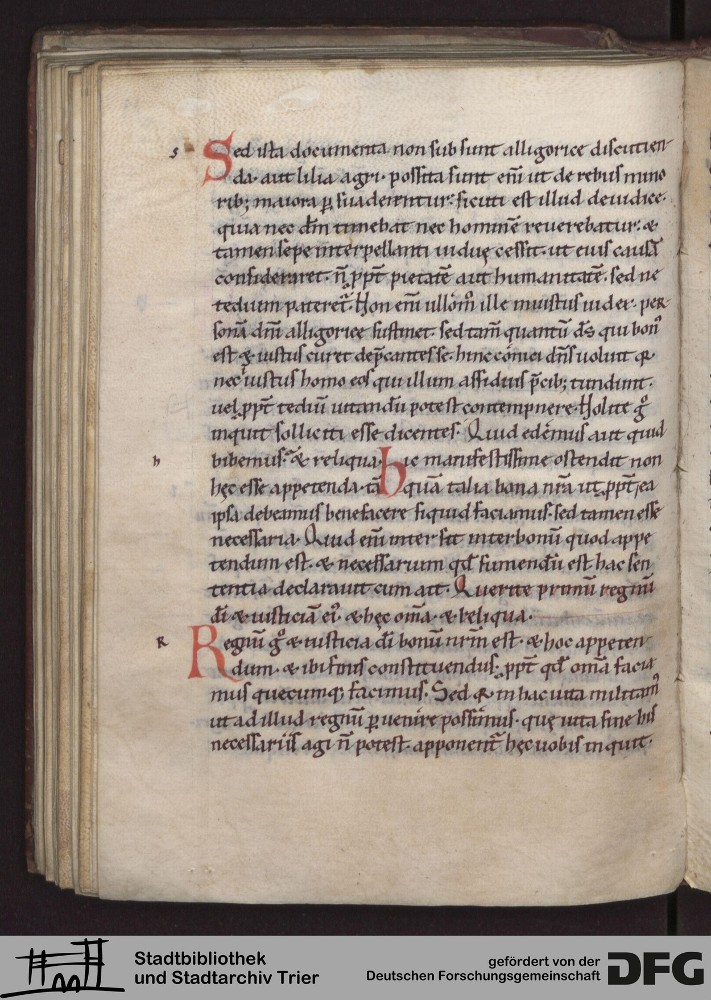 s Sed ista documenta non sub sunt alligorice discutien
da. aut lilia agri. possita sunt eni̅ ut de rebus mino
rib; maiora p̲suaderentur: sicuti est illud de iudice.
quia nec dm̅ timebat nec homine̅ reuerebatur: &
tamen sepe interpellanti uiduę cessit. ut eius causa̅
consideraret. n̅ ꝓpt̅ pietate̅ aut humanitate̅. sed ne
tedium pateret̅. Non eni̅ ullom̊ ille iniustus iudex. per
sona̅ dn̅i alligorice sustinet. sed tam̅ quantu̅ ds̅ qui bon᷒
est & iustus curet dep̅cantes se. hinc conici dn̅s uoluit q̅
nec iustus homo eos qui illum assiduis p̅cib; tundunt.
uel ꝓpt̅ tediu̅ uitandu̅ potest contempnere. Nolite g̊
inquit solliciti esse dicentes. Quid edemus aut quid
h bibemus. & reliqua. hic manifestissime ostendit non
hęc esse appetenda. ta̅ qua̅ talia bona nr̅a ut ꝓpt̅ ea
ipsa debeamus benefacere siquid faciamus. sed tamen esse
necessaria. Quid eni̅ inter sit inter bonu̅ quod appe
tendum est. & necessarium qd̅ sumendu̅ est hac sen
tentia declarauit cum ait. Querite primu̅ regnu̅
di̅ & iusticia̅ ei᷒. & hęc oma̅. & reliqua.
R Regnu̅ g̊ & iusticia di̅ bonu̅ nr̅m est. & hoc appeten
dum. & ibi finis constituendus. ꝓpt̅ qd̅ oma̅ facia
mus quecumq; facimus. Sed q̅ in hac uita militam᷒
ut ad illud regnu̅ p̲uenire possimus. quę uita sine his
necessariis agi n̅ potest. apponent̅ hęc uobis inquit.
Stadtbibliothek
und Stadtarchiv Trier
gefördert von der
Deutschen Forschungsgemeinschaft
DFG